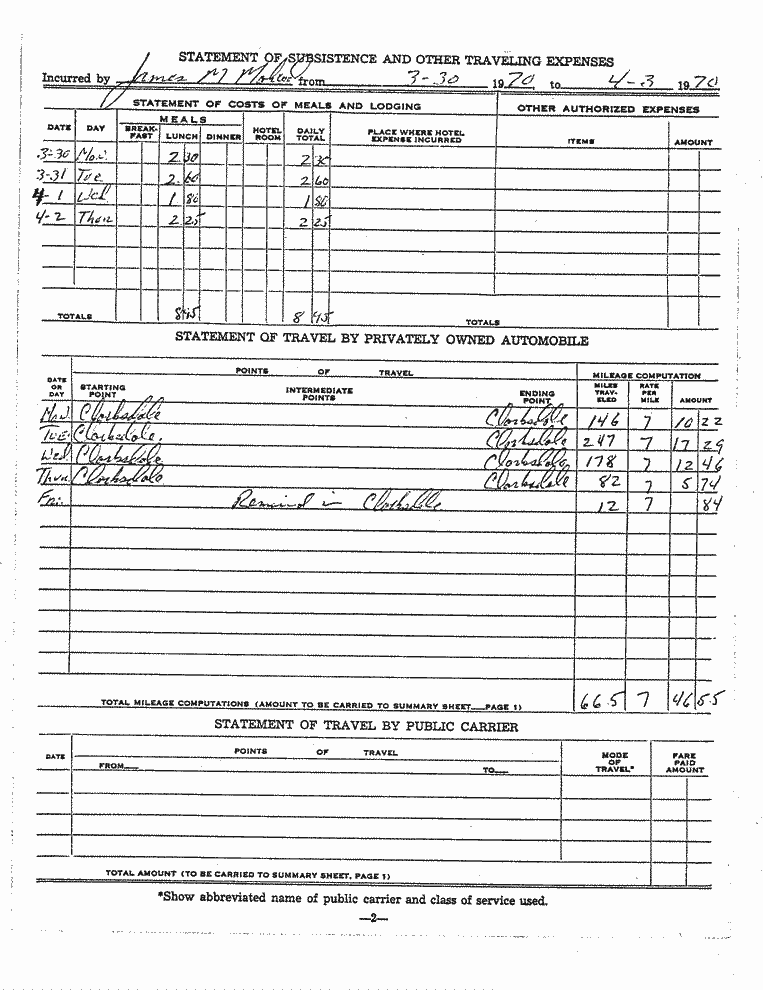 STATEMENT OF SUBSISTENCE AND OTHER TRAVELING EXPENSES
Incurred by James M from 3-30 1970 to 4-3 1970
STATEMENT OF COSTS OF MEALS AND LODGING OTHER AUTHORIZED EXPENSES
DATE DAY MEALS BREAK-FAST LUNCH DINNER HOTEL ROOM DAILY TOTAL PLACE WHERE HOTEL EXPENSE INCURRED ITEMS AMOUNT
3-30 Mon. 2 30 2 30
3-31 Tue 2.60 2 60
4-1 Wed 1 80
4-2 Thur 2 25 2 25
TOTALS 8 45 8 45 TOTALS
STATEMENT OF TRAVEL BY PRIVATELY OWNED AUTOMOBILE
POINTS OF TRAVEL MILEAGE COMPUTATION
DATE OR DAY STARTING POINT INTERMEDIATE POINTS ENDING POINT MILES TRAV-ELED RATE PER MILE AMOUNT
Mon Clarksdale Clarksdale 146 7 10 22
Tue Clarksdale. Clarksdale 247 7 17 29
Wed Clarksdale Clarksdale 178 7 12 46
Thur Clarksdale Clarksdale 82 7 5 74
Fri. Remained in Clarksdale 12 7 84
TOTAL MILEAGE COMPUTATIONS (AMOUNT TO BE CARRIED TO SUMMARY SHEET—PAGE 1) 665 7 46 55
STATEMENT OF TRAVEL BY PUBLIC CARRIER
DATE POINTS OF TRAVEL MODE OF TRAVEL* FARE PAID AMOUNT
FROM— TO—
TOTAL AMOUNT (TO BE CARRIED TO SUMMARY SHEET, PAGE 1)
*Show abbreviated name of public carrier and class of service used.
—2—